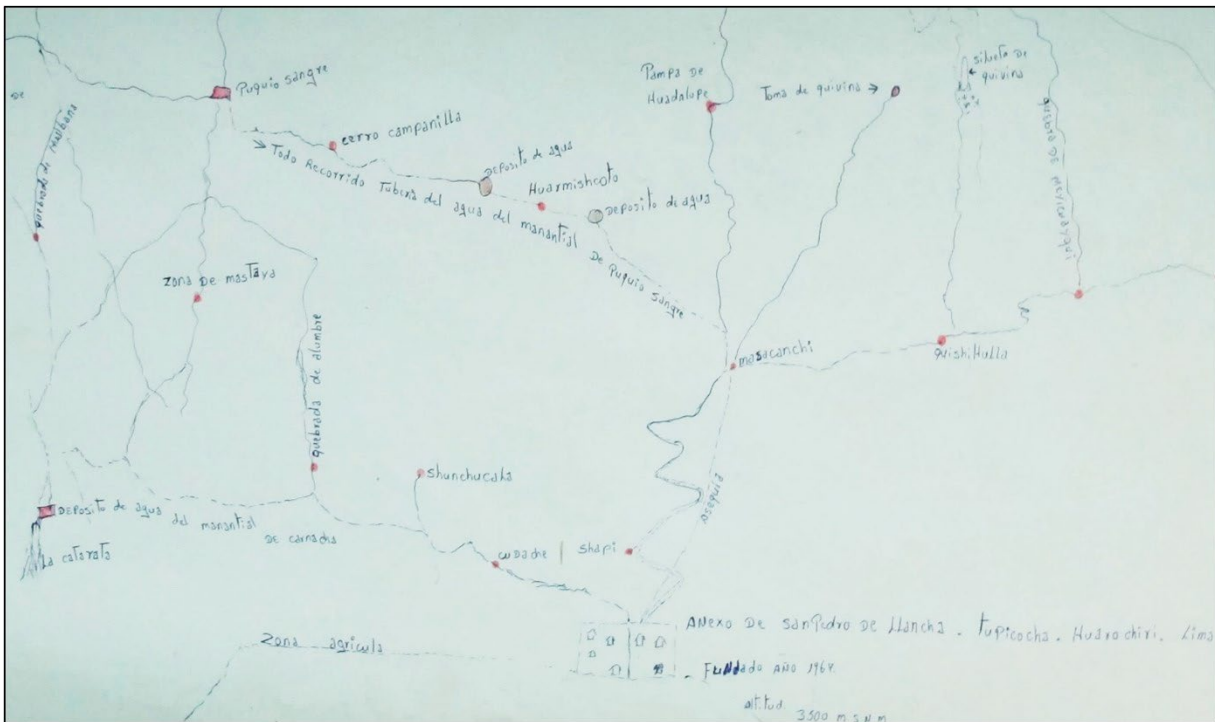 Puquio sangre
DE
Pampa DE
Huadalupe
Toma de quivina →
silueta de
quivina
cerro campanilla
→ Todo Recorrido Tuberia del agua del manantial De Puquio sangre
DEPOSITO de agua
Huarmishcoto
DEPOSITO de agua
Quebrada de
Zona DE mastava
quebrada de alumbre
masacanchi
quishihulla
shunchucala
DEPOSITO de agua del manantial
DE carnacha
La catarata
cudache
shapi
Asequia
Zona agricula
ANEXO DE SanPedro DE Llancha. Tupicocha. Huarochiri. Lima
- FUNDado AÑO
altitud.
3500 m.s.n.m